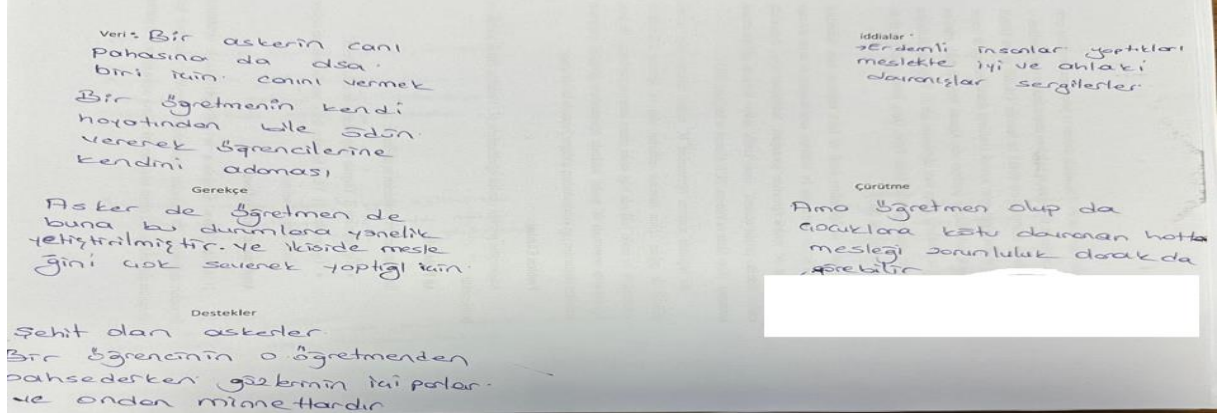 Veri: Bir askerin canı
pahasına da olsa
biri için canını vermek
Bir öğretmenin kendi
hayatından bile ödün
vererek öğrencilerine
kendini adaması
Gerekçe
Asker de öğretmen de
buna bu durumlara yönelik
yetiştirilmiştir. ve ikiside mesle
ğini çok severek yaptığı için.
Destekler
Şehit olan askerler.
Bir öğrencinin o öğretmenden
bahsederken gözlerinin içi parlar.
ve ondan minnettardır
iddialar
→Erdemli insanlar yaptıkları
meslekte iyi ve ahlaki
davranışlar sergilerler.
Çürütme
Ama öğretmen olup da
çocuklara kötü davranan hatta
mesleği zorunluluk olarak da
görebilir